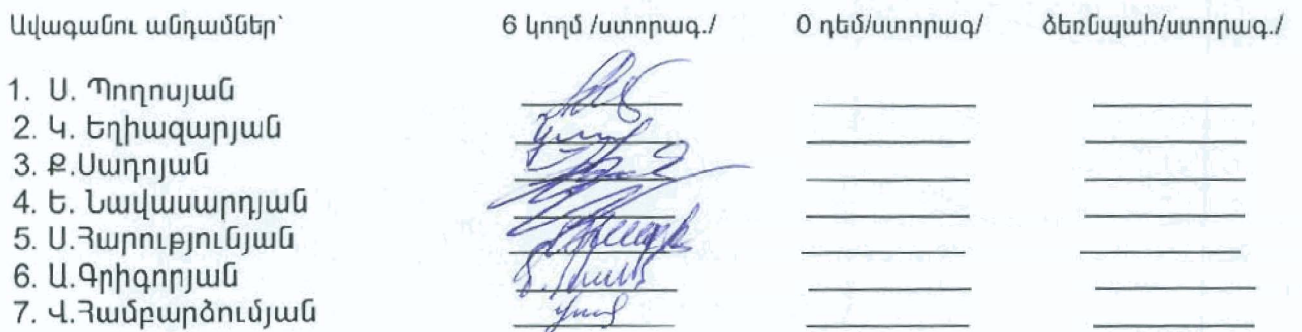 Ավագանու անդամներ՝ 6 կողմ /ստորագ./ 0 դեմ/ստորագ/ ձեռնպահ/ստորագ./
1. Ս. Պողոսյան
2. Կ. Եղիազարյան
3. Ք.Սադոյան
4. Ե. Նավասարդյան
5. Ս.Հարությունյան
6. Ա.Գրիգորյան
7. Վ.Համբարձումյան